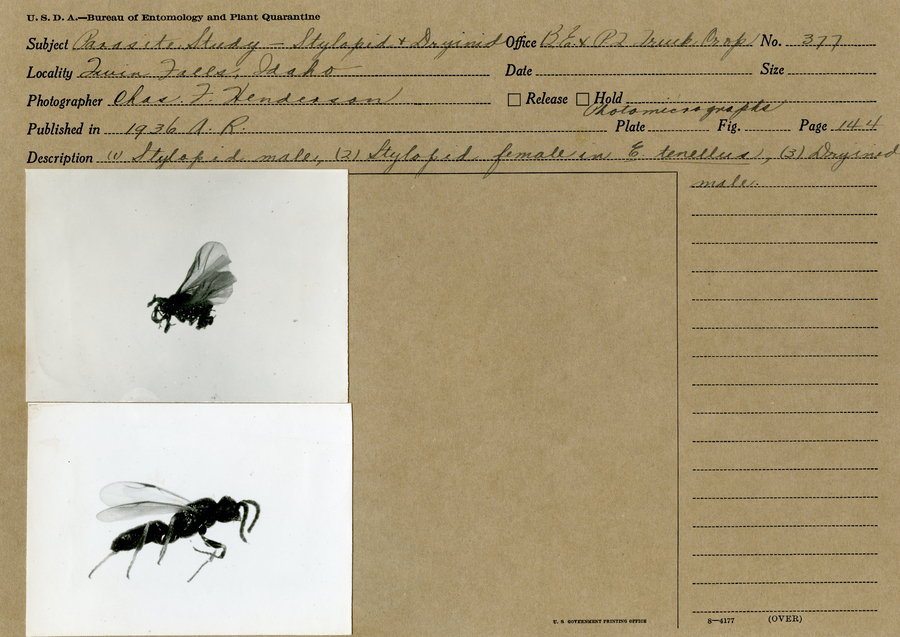 U. S. D. A.—Bureau of Entomology and Plant Quarantine
Subject Parasite Study - Stylopid & Dryinid Office B.E. & P.Q. Truck Crop No. 377
Locality Twin Falls, Idaho Date Size
Photographer Chas. F. Henderson Release Hold
Photomicrographs
Published in 1936 A. R. Plate Fig. Page 144
Description (1) Stylopid male, (2) Stylopid female in E tenellus, (3) Dryinid
male.
U. S. GOVERNMENT PRINTING OFFICE
8—4177 (OVER)